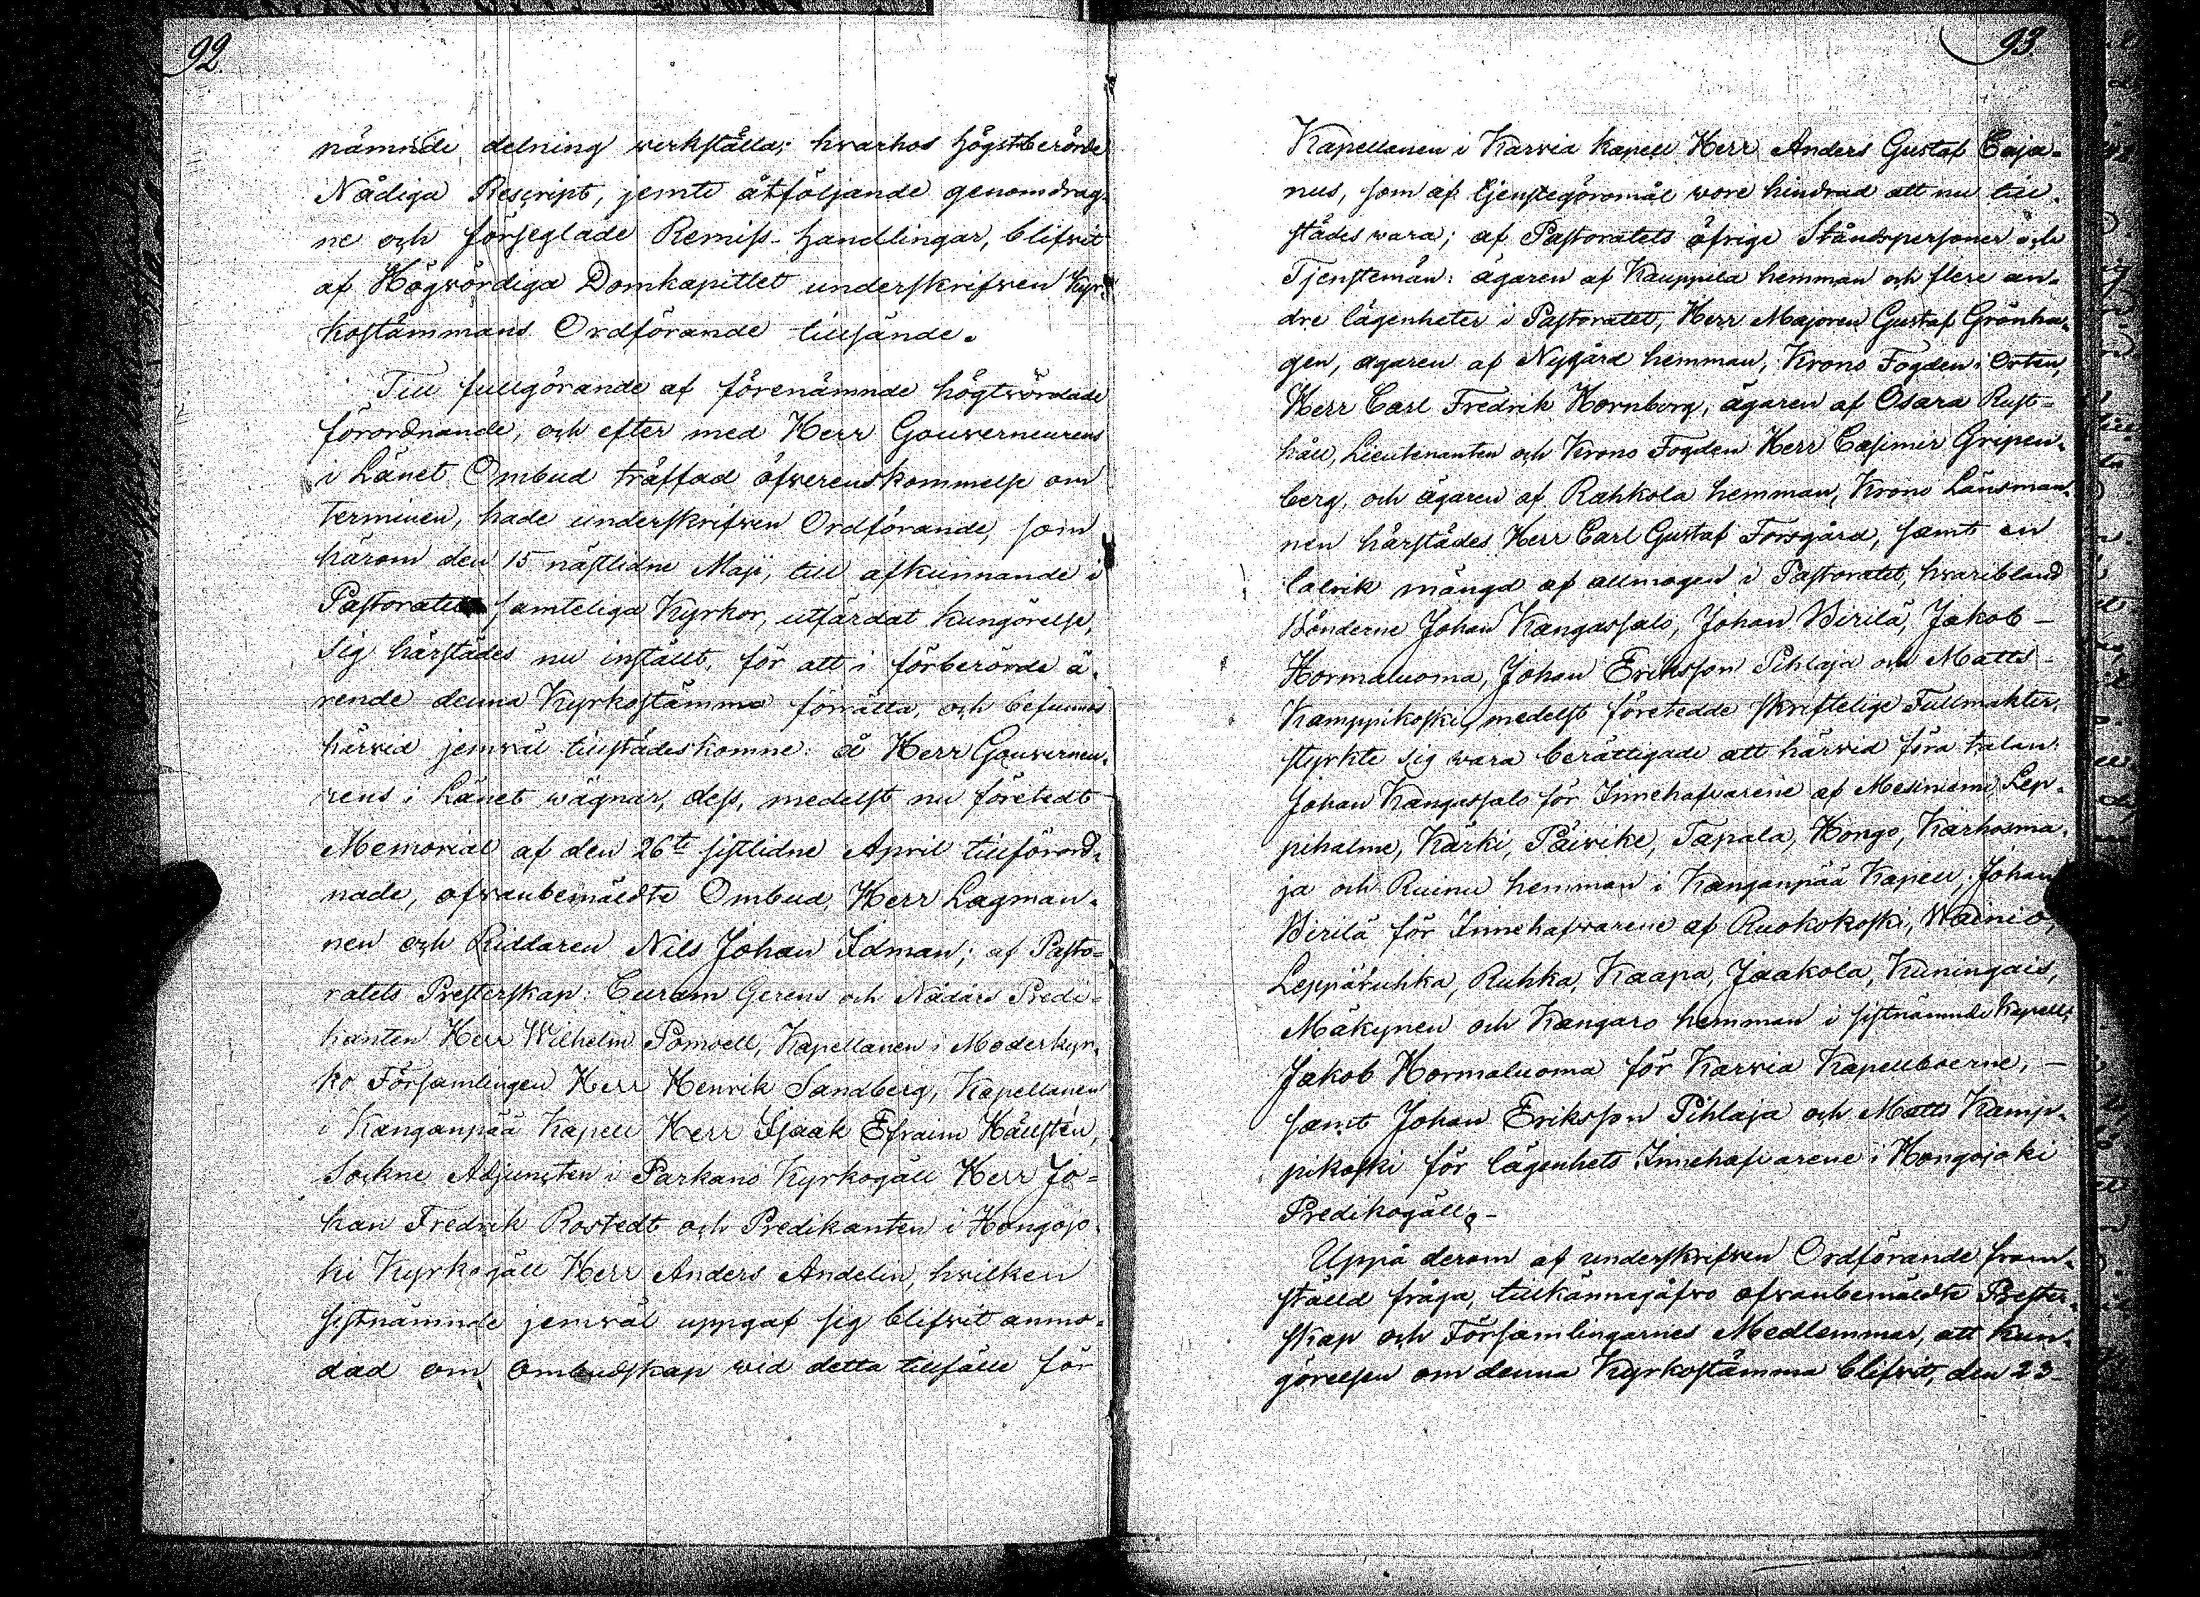 92.
nämnde delning verkställa; hvarhos högstberörde
Nådiga Rescript, jemte åtföljande genomdrag-
ne och förseglade Remiss-handlingar, blifvit
af Högvördiga Domkapitlet underskrifven Kyr-
kostämmans Ordförande tillsände.
Till fullgörande af förenämnde högtvördade
förordnande, och efter med Herr Gouverneurens
i Länet Ombud träffad öfverenskommelse om
terminen, hade underskrifven Ordförande, som
härom den 15 nästlidne Maji, till afkunnande i
Pastoratets samteliga Kyrkor, utfärdat kungörelse,
sig härstädes nu inställt, för att i förberörde ä-
rende denna Kyrkostämma förrätta, och befunnos
härvid jemväl tillstädeskomne: å Herr Gouverneu-
rens i Länet wägnar, dess, medelst nu företedt
Memorial af den 26te sistlidne April tillförord-
nade, ofvanbemäldte Ombud, Herr Lagman-
nen och Riddaren Nils Johan Idman; af Pasto-
ratets Presterskap: Curam Gerens och Nådårs Predi-
kanten Herr Wilhelm Pomoell, Kapellanen i Moderkyr-
ko Församlingen Herr Henrik Sandberg, Kapellanen
i Kanganpää Kapell Herr Isaak Efraim Hällsten,
Sockne Adjuncten i Parkano Kyrkogäll Herr Jo-
han Fredrik Rostedt och Predikanten i Hongojo-
ki Kyrkogäll Herr Anders Andelin, hvilken
sistnämnde jemväl uppgaf sig blifvit anmo-
dad om Ombudskap vid detta tillfälle för
93
Kapellanen i Karvia kapell Herr Anders Gustaf Caja-
nus, som af tjenstegöromål vore hindrad att nu till-
städes vara; af Pastoratets öfrige Ståndspersoner och
Tjenstemän: ägaren af Kauppila hemman och flere an-
dre lägenheter i Pastoratet, Herr Majoren Gustaf Grönha-
gen, ägaren af Nygård hemman, Krono Fogden i Orten,
Herr Carl Fredrik Hornborg, ägaren af Osara Rust-
håll, Lieutenanten och Krono Fogden Herr Casimir Gripen-
berg, och ägaren af Rahkola hemman, Krono Länsman-
nen härstädes Herr Carl Gustaf Forsgård, samt en
talrik mängd af allmogen i Pastoratet, hvaribland
Bönderne Johan Kangassalo, Johan Wirilä, Jakob –
Hormaluoma, Johan Eriksson Pihlaja och Matts –
Kamppikoski, medelst företedde skriftelige Fullmakter,
styrkte sig vara berättigade att härvid föra talan:
Johan Kangassalo för Innehafvarene af Mesiniemi, Lep-
pihalme, Kärki, Päivike, Tapala, Hongo, Karhoma-
ja och Ruinu hemman i Kanganpää Kapell; Johan
Wirilä för Innehafvarene af Ruokokoski, Wainio,
Leppäruhka, Ruhka, Kaapa, Jaakola, Kuningais,
Mäkynen och Kangaro hemman i sistnämnde Kapell;
Jakob Hormaluoma för Karvia Kapellboerne, –
samt Johan Eriksson Pihlaja och Matts Kamp-
pikoski för lägenhets Innehafvarene i Hongojoki
Predikogäll. –
Uppå derom af underskrifven Ordförande fram-
ställd fråga, tillkännagåfvo ofvanbemäldte Prester-
skap och Församlingarnes Medlemmar, att kun-
görelsen om denna Kyrkostämma blifvit, den 23